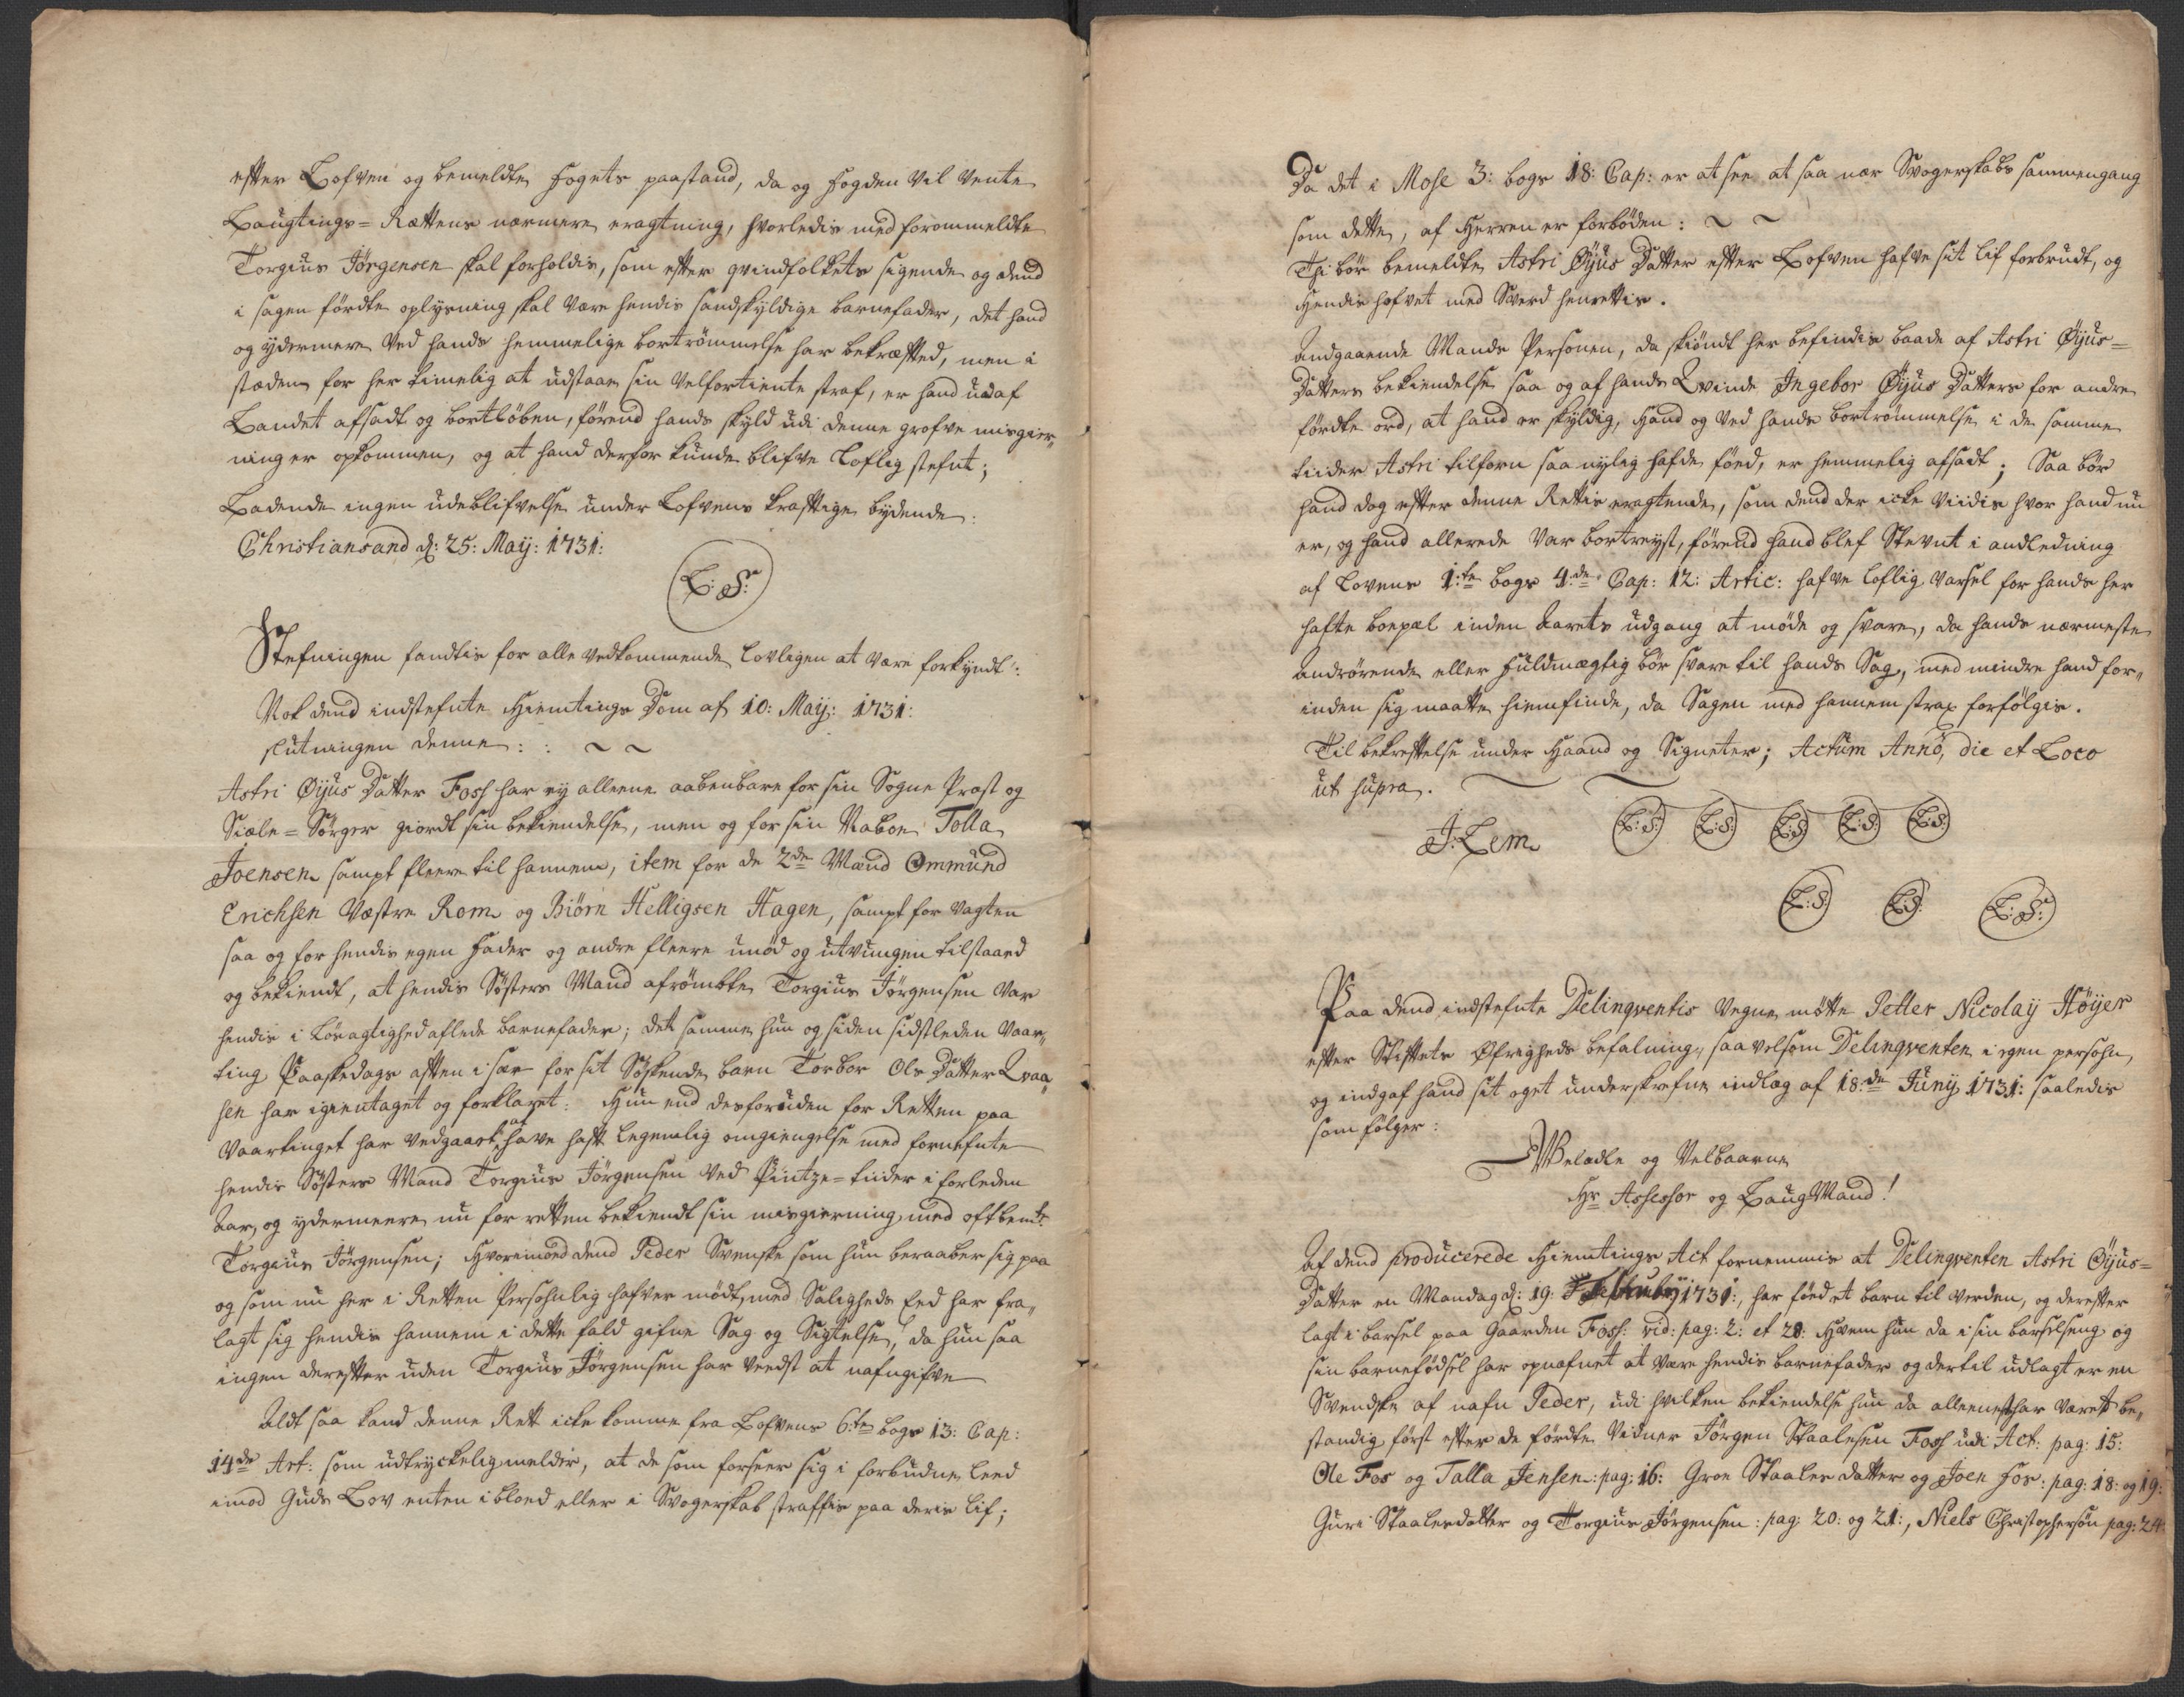 efter Lofven og bemeldte fogets paastand, da og fogden vil vente
Laugtings=Rættens nærmere eragtning, hvorledis med forommeldte
Torgius Jörgensen skal forholdis, som efter qvindfolkets sigende og dend
i sagen fördte oplysning skal være hendis sandskyldige barnefader, det hand
og ydermere ved hands hemmelige bortrömmelse har bekræfted, men i
stæden for her kimelig at udstaae sin velfortiente straf, er hand udaf
Landet afsadt og bortlöben, förend hands skyld udi denne grofve misgier„
ning er opkommen, og at hand derfor kunde blifve Loflig stefnt;
Ladende ingen udeblifvelse under Lofvens kraftige bydende.
Christiansand d: 25: Maij: 1731:
L: S:
Stefningen fandtis for alle vedkommende lovligen at være forkyndt:
Nok dend indstefnte Hiemtings Dom af 10: Maij: 1731:
slutningen denne: : ~ ~
Astri Øijus Datter Foss har ej alleene aabenbare for sin Sogne Præst og
Siæle=Sörger giordt sin bekiendelse, men og for sin Naboe Tolla
Joensen sampt fleere til hannem, item for de 2de Mænd Ommund
Erichsen Væstre Rom og Biörn Helligsen Hagen, sampt for vagten
saa og for hendis egen Fader og andre fleere unöd og utvungen tilstaaed
og bekiendt, at hendis Sösters Mand afrömbte Torgius Jörgensen var
hendis i Lösagtighed aflede barnefader; det samme hun og siden sidstleden vaar„
ting Paaskedags aften i sær for sit Söskende barn Torbor Ols Datter Qvaa„
sen har igientaget og forklaret: Hun end desforuden for Retten paa
Vaartinget har vedgaaet at have haft legemlig omgiengelse med fornefnte
hendis Sösters Mand Torgius Jörgensen ved Pintze=tiider i forleden
Aar, og ydermeere nu for retten bekiendt sin misgierning med oftbemte
Torgius Jörgensen; Hvorimod dend Peder Svenske som hun beraaber sig paa
og som nu her i Retten Persohnlig hafver mödt, med Saligheds Eed har fra„
lagt sig hendis hannem i dette fald gifne Sag og Sigtelse, da hun saa
ingen derefter uden Torgius Jörgensen har veedst at nafngifve
Altsaa kand denne Rett icke komme fra Lofvens 6te bogs 13: Cap:
14de Art: som udtryckelig melder, at de som forseer sig i forbudne Leed
imod Guds Lov enten i blood eller i Svogerskab straffis paa deris lif;
Da det i Mose 3: bogs 18: Cap: er at see at saa nær Svogerskabs sammengang
som dette, af Herren er forböden: ~ ~
Thi bör bemeldte Astri Øijus Datter efter Lofven hafve sit lif forbrudt, og
Hendis hofvet med Sverd henrettis.
Andgaaende Mands Personen, da skiöndt her befindis baade af Astri Øijus=
Datters bekiendelse saa og af hands Qvinde Ingebor Øijus Datters for andre
fördte ord, at hand er skyldig, Hand og ved hands bortrömmelse i de samme
tiider Astri tilforn saa nylig hafde föed, er hemmelig afsadt; Saa bör
hand dog efter denne Rettis eragtende, som dend der icke viidis hvor hand nu
er, og hand allerede var bortreyst, förend hand blef Stevnt i andledning
af Lovens 1:te bogs 4:de Cap: 12: Artic: hafve loflig varsel for hands her
hafte boepæl inden Aarets udgang at möde og svare, da hands nærmeste
andrörende eller fuldmægtig bör svare til hands Sag, med mindre hand for„
inden sig maatte hiemfinde, da Sagen med hannem strax forfölgis.
Til bekreftelse under Haand og Signeter; Actum Anno, die et Loco
ut supra.
J: Lem
L: S: L: S: L: S: L: S: L: S:
L: S: L: S: L: S:
Paa dend indstefnte Delinqventis vegne mötte Petter Nicolay Höyer
efter Stiftets Øfrigheds befalning, saavelsom Delinqventen i egen persohn,
og indgaf hand sit eget underskrefne indlæg af 18:de Junij 1731: saaledis
som fölger:
Velædle og Velbaarne
Hr Assessor og LaugMand!
Af dend producerede Hiemtings Act fornemmis at Delinqventen Astri Öijus=
Datter en Mandag d: 19: Februarij 1731:, har föed et barn til verden, og derefter
lagt i barsel paa Gaarden Foss: vid: pag: 2: et 28: Hvem hun da i sin barselseng og
sin barnefödsel har opnæfnet at være hendis barnefader og dertil udlagt er en
Svendske af nafn Peder, udi hvilken bekiendelse hun da alleenest har været be„
standig först efter de fördte Vidner Jörgen Staalesen Foss udi Act: pag: 15:
Ole Fos og Talla Jensen: pag: 16: Groe Staales datter og Joen Fos: pag: 18: og 19:
Guri Staalesdatter og Torgius Jörgensen: pag: 20: og 21:, Niels Christophersön pag: 24: